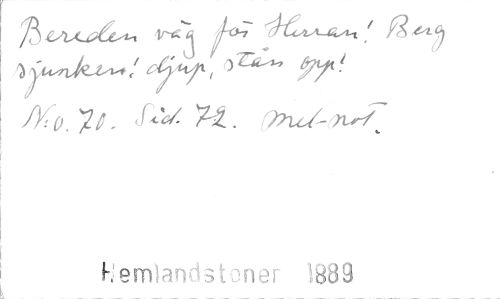 Bereden väg för Herran! Berg
sjunken! djup, stån opp!
N:o. 70. Sid. 72. mel-not.
Hemlandstoner 1889